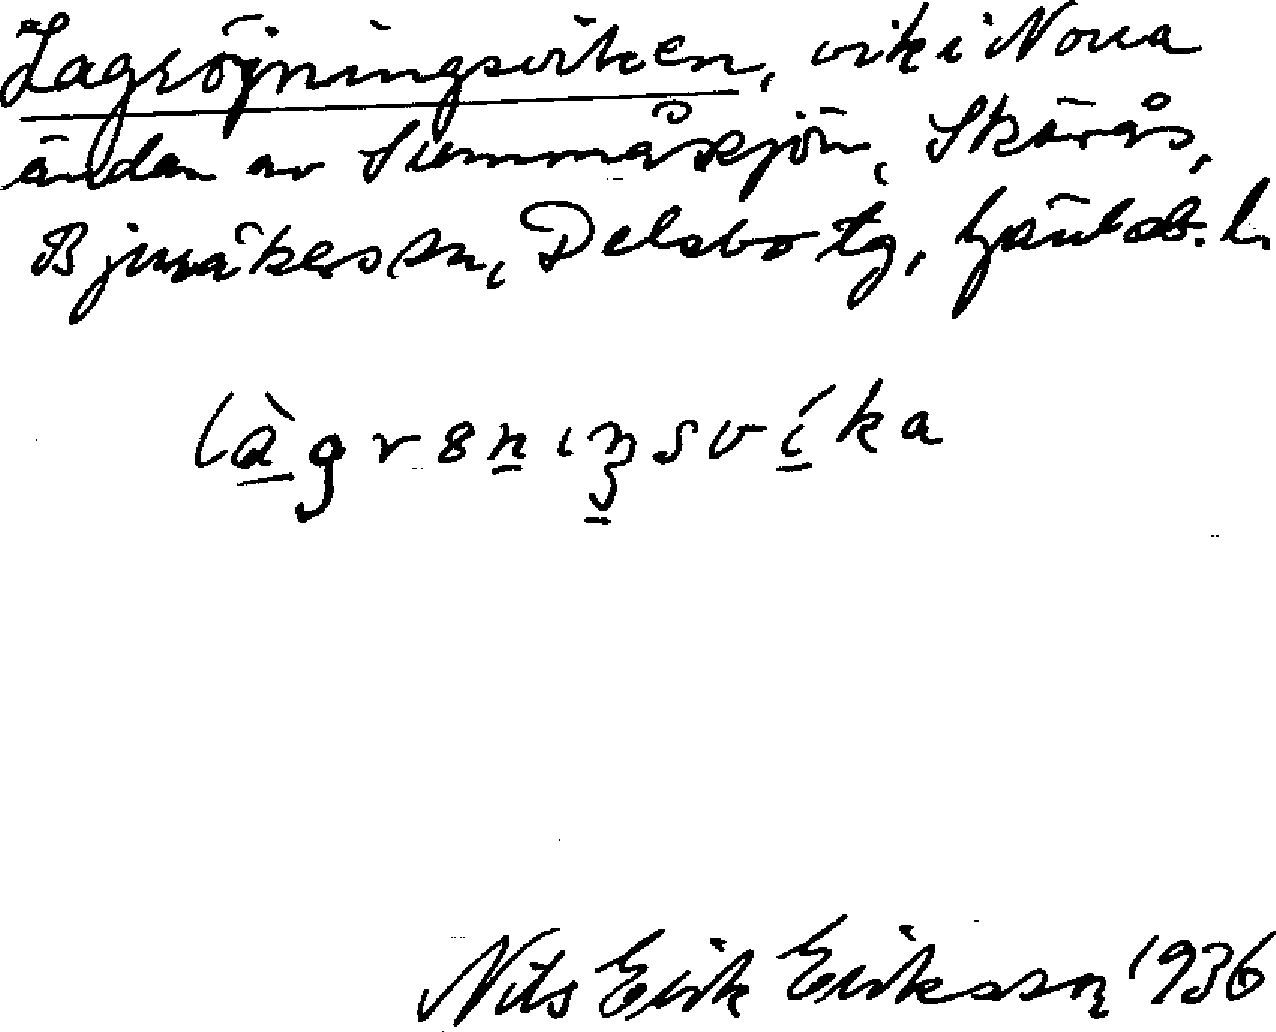 Lagröjningsviken, vik i Norra
ändan av Summåssjön, Skärås,
Bjuråkers sn, Delsbo tg, Gävleb. l.
làgrönıŋsvíka
Nils Erik Eriksson 1936